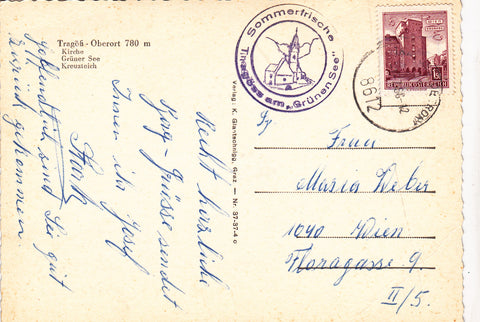 Tragöß - Oberort 780 m
Kirche
Grüner See
Kreuzteich
Recht herzliche
Grüsse sendet
Ihnen ihr Josef
Hoffentlich sind Sie gut
zurück gekommen
Verlag: K. Glantschnigg, Graz — Nr. 37-87-4 c
Sommerfrische
Tragöss am „Grünen See"
8612
REPUBLIK ÖSTERREICH
Frau
Maria Weber
1040 Wien
Floragasse 9.
II/5.